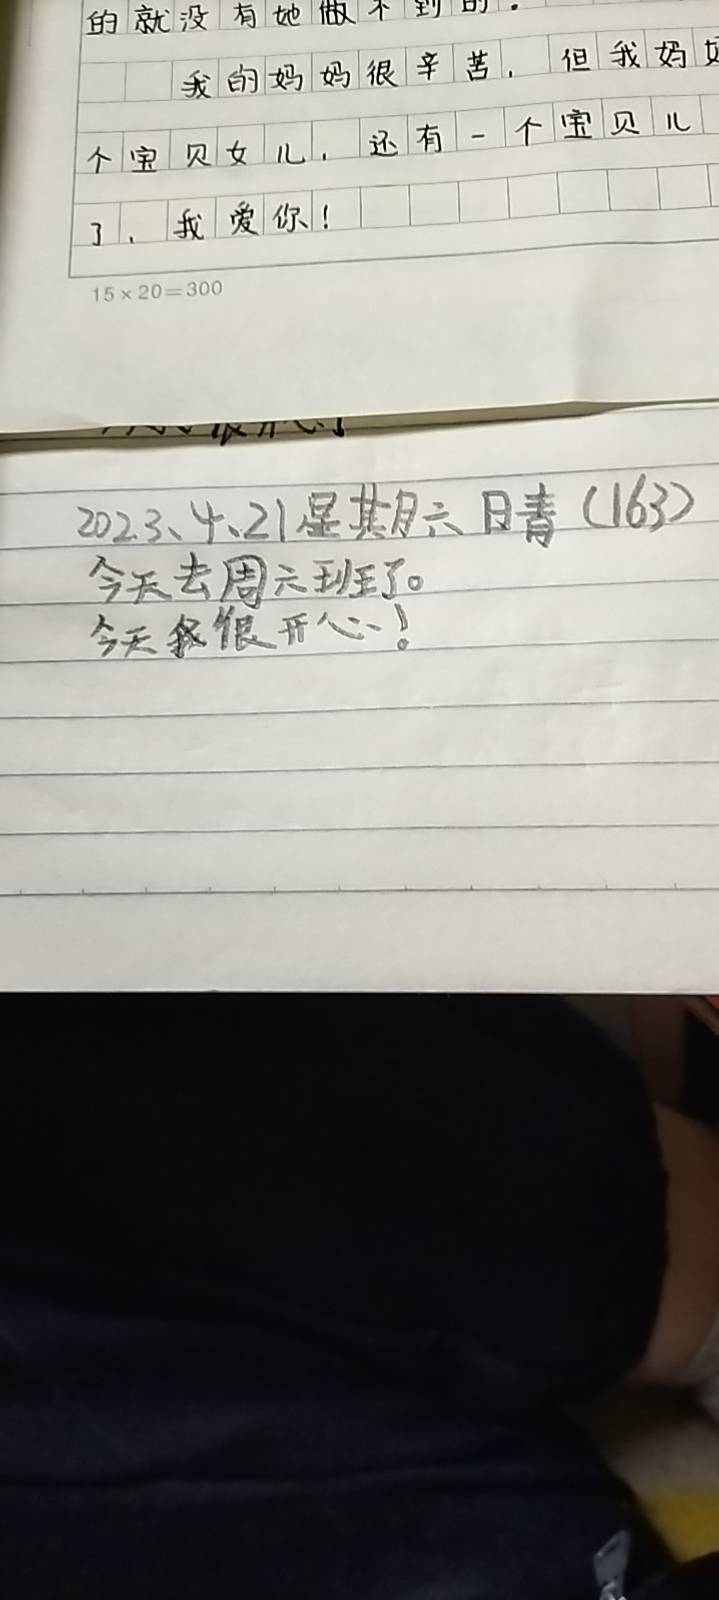 的就没有她做不到的.
我的妈妈很辛苦,但我妈妈
个宝贝女儿,还有一个宝贝儿
了,我爱你!
15×20=300
很开心!
2023、4、21星其月六 日青(163)
今天去周六班了。
今天我很开心!